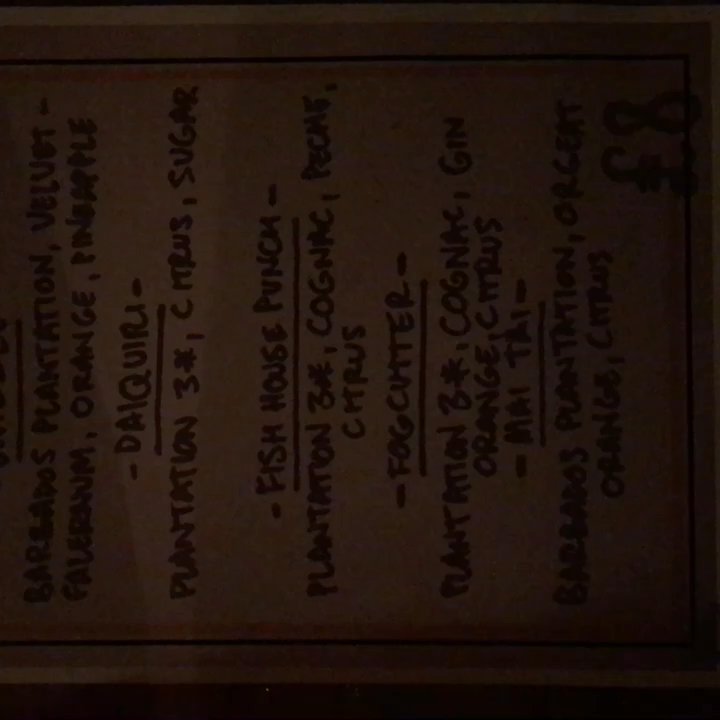 BARBADOS PLANTATION, VELVET -
FALERNUM, ORANGE, PINEAPPLE
- DAIQUIRI -
PLANTATION 3*, CITRUS, SUGAR
- FISH HOUSE PUNCH -
PLANTATION 3*, COGNAC, PECHE,
CITRUS
- FOGCUTTER -
PLANTATION 3*, COGNAC, GIN
ORANGE, CITRUS
- MAI TAI -
BARBADOS PLANTATION, ORGEAT
ORANGE, CITRUS
£8